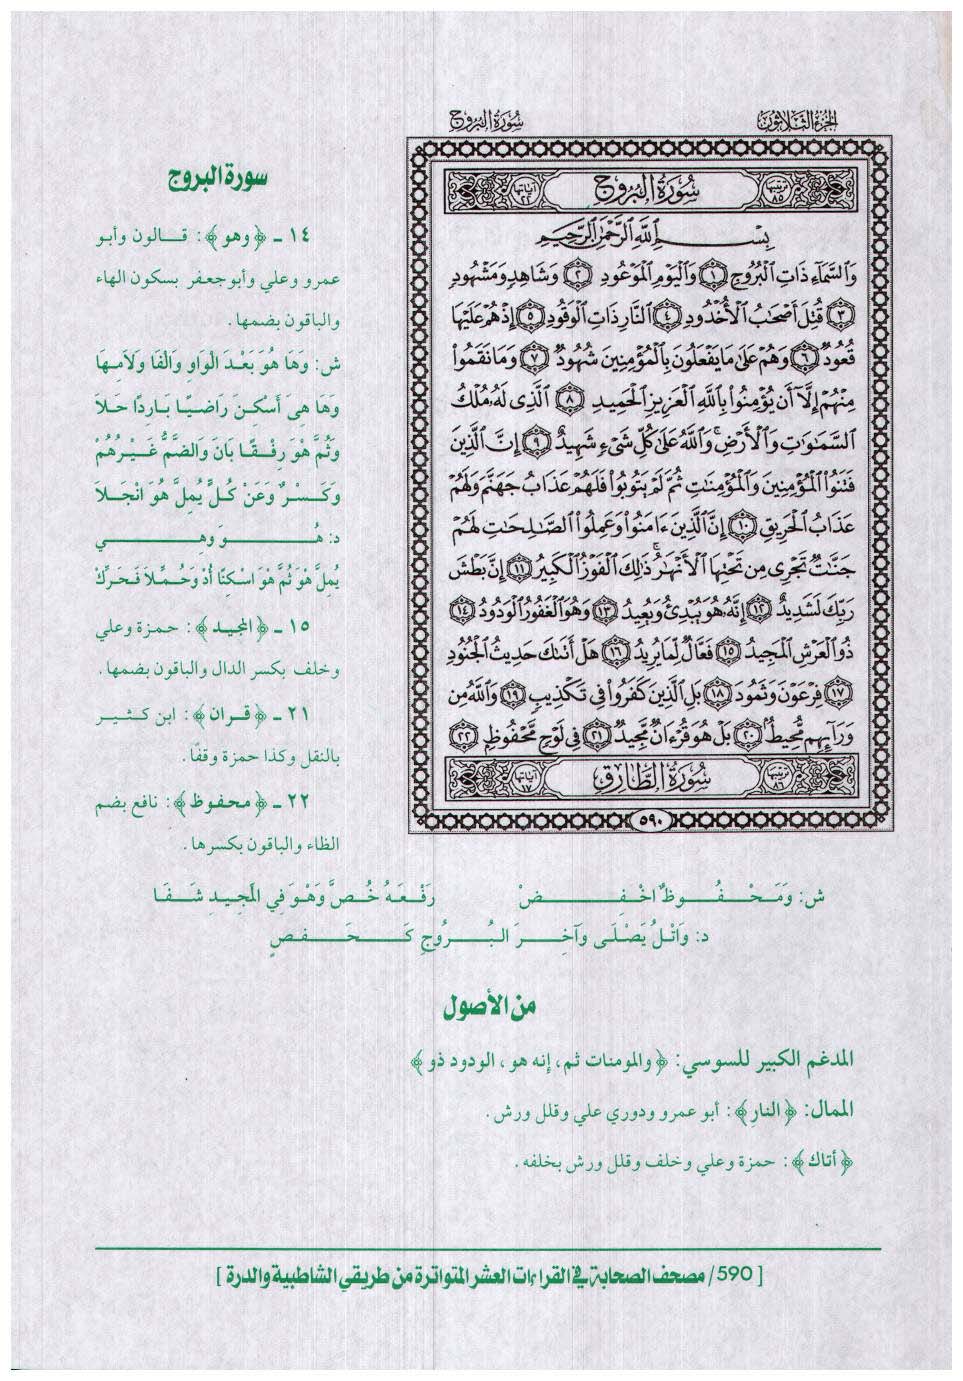 الجزء الثلاثون
سورة البروج
ترتيبها ٨٥
سُورَةُ الْبُرُوجِ
آياتها ٢٢
بِسْمِ اللَّهِ الرَّحْمَٰنِ الرَّحِيمِ
وَالسَّمَاءِ ذَاتِ الْبُرُوجِ ﴿١﴾ وَالْيَوْمِ الْمَوْعُودِ ﴿٢﴾ وَشَاهِدٍ وَمَشْهُودٍ
﴿٣﴾ قُتِلَ أَصْحَابُ الْأُخْدُودِ ﴿٤﴾ النَّارِ ذَاتِ الْوَقُودِ ﴿٥﴾ إِذْ هُمْ عَلَيْهَا
قُعُودٌ ﴿٦﴾ وَهُمْ عَلَىٰ مَا يَفْعَلُونَ بِالْمُؤْمِنِينَ شُهُودٌ ﴿٧﴾ وَمَا نَقَمُوا
مِنْهُمْ إِلَّا أَن يُؤْمِنُوا بِاللَّهِ الْعَزِيزِ الْحَمِيدِ ﴿٨﴾ الَّذِي لَهُ مُلْكُ
السَّمَاوَاتِ وَالْأَرْضِ ۚ وَاللَّهُ عَلَىٰ كُلِّ شَيْءٍ شَهِيدٌ ﴿٩﴾ إِنَّ الَّذِينَ
فَتَنُوا الْمُؤْمِنِينَ وَالْمُؤْمِنَاتِ ثُمَّ لَمْ يَتُوبُوا فَلَهُمْ عَذَابُ جَهَنَّمَ وَلَهُمْ
عَذَابُ الْحَرِيقِ ﴿١٠﴾ إِنَّ الَّذِينَ ءَامَنُوا وَعَمِلُوا الصَّالِحَاتِ لَهُمْ
جَنَّاتٌ تَجْرِي مِن تَحْتِهَا الْأَنْهَارُ ۚ ذَٰلِكَ الْفَوْزُ الْكَبِيرُ ﴿١١﴾ إِنَّ بَطْشَ
رَبِّكَ لَشَدِيدٌ ﴿١٢﴾ إِنَّهُ هُوَ يُبْدِئُ وَيُعِيدُ ﴿١٣﴾ وَهُوَ الْغَفُورُ الْوَدُودُ ﴿١٤﴾
ذُو الْعَرْشِ الْمَجِيدُ ﴿١٥﴾ فَعَّالٌ لِّمَا يُرِيدُ ﴿١٦﴾ هَلْ أَتَاكَ حَدِيثُ الْجُنُودِ
﴿١٧﴾ فِرْعَوْنَ وَثَمُودَ ﴿١٨﴾ بَلِ الَّذِينَ كَفَرُوا فِي تَكْذِيبٍ ﴿١٩﴾ وَاللَّهُ مِن
وَرَائِهِم مُّحِيطٌ ﴿٢٠﴾ بَلْ هُوَ قُرْءَانٌ مَّجِيدٌ ﴿٢١﴾ فِي لَوْحٍ مَّحْفُوظٍ ﴿٢٢﴾
ترتيبها ٨٦
سُورَةُ الطَّارِقِ
آياتها ١٧
٥٩٠
سورة البروج
١٤ ـ ﴿وهو﴾: قالون وأبو
عمرو وعلي وأبو جعفر بسكون الهاء
والباقون بضمها.
ش: وَهَا هُوَ بَعْدَ الْوَاوِ وَالْفَا وَلَامِهَا
وَهَا هِيَ أَسْكِنْ رَاضِيًا بَارِدًا حَلَا
وَثُمَّ هُوَ رِفْقًا بَانَ وَالضَّمُّ غَيْرُهُمْ
وَكَسْرٌ وَعَنْ كُلٍّ يُمِلَّ هُوَ انْجَلَا
د: هُوَ وَهِي
يُمِلَّ هُوَ ثُمَّ هُوَ اسْكِنًا أُدْ وَحُمِّلَا فَحَرِّكْ
١٥ ـ ﴿المجيد﴾: حمزة وعلي
وخلف بكسر الدال والباقون بضمها.
٢١ ـ ﴿قران﴾: ابن كثير
بالنقل وكذا حمزة وقفًا.
٢٢ ـ ﴿محفوظ﴾: نافع بضم
الظاء والباقون بكسرها.
ش: وَمَحْفُوظٌ اخْفِضْ رَفْعَهُ خُصَّ وَهْوَ فِي الْمَجِيدِ شَفَا
د: وَاتْلُ يَصْلَى وَآخِرَ الْبُرُوجِ كَحَفْصٍ
من الأصول
المدغم الكبير للسوسي: ﴿والمومنات ثم، إنه هو، الودود ذو﴾
الممال: ﴿النارِ﴾: أبو عمرو ودوري علي وقلل ورش.
﴿أتاك﴾: حمزة وعلي وخلف وقلل ورش بخلفه.
[590/ مصحف الصحابة في القراءات العشر المتواترة من طريقي الشاطبية والدرة]